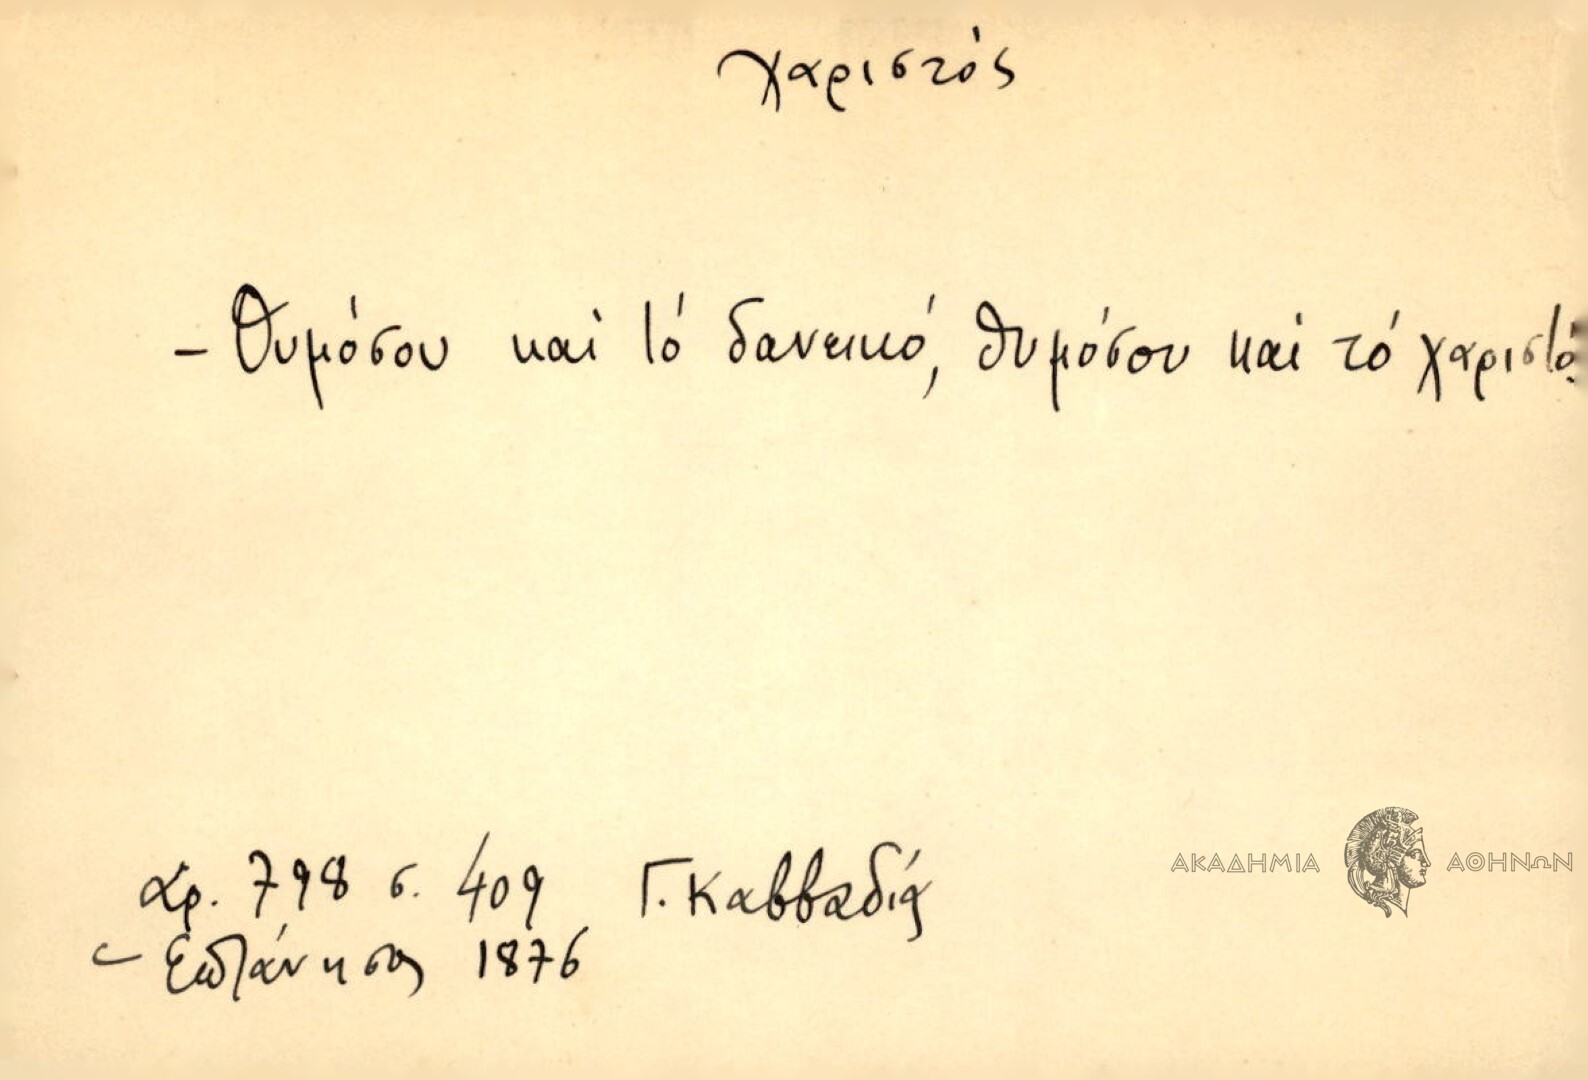 χαριστός
- Θυμόσου καί τό δανεικό, θυμόσου καί τό χαριστό.
Αρ. 798 σ. 409 Γ. Καββαδίας
Επτάνησος 1876
ΑΚΑΔΗΜΙΑ ΑΘΗΝΩΝ